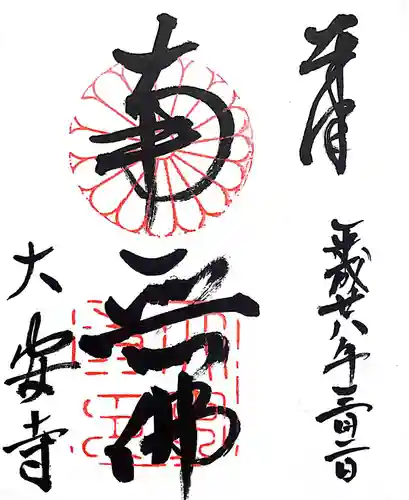 奉拝
平成廿八年三月二日
南無佛
大安寺